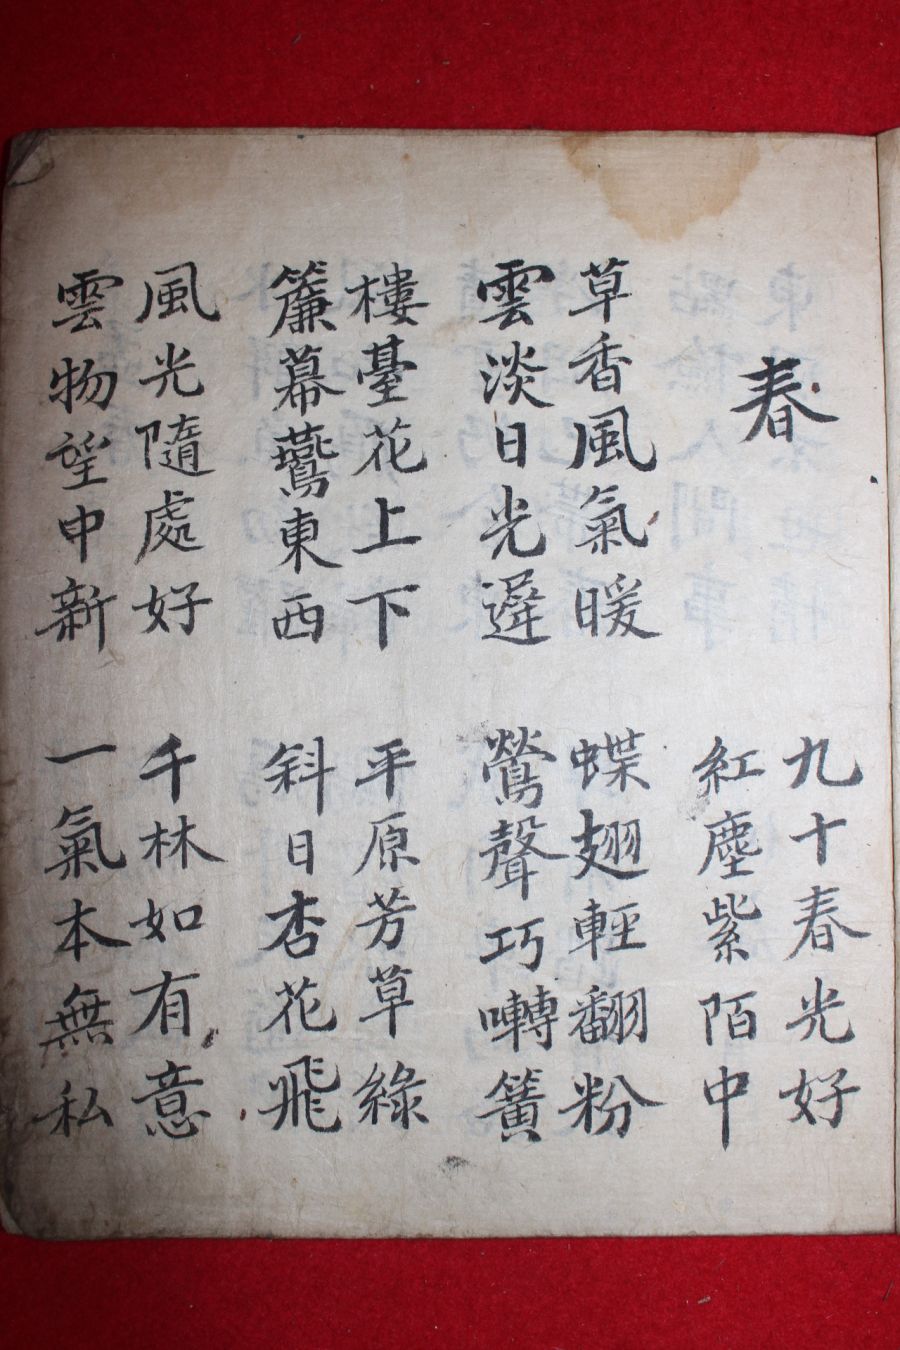 春
九十春光好
紅塵紫陌中
草香風氣暖
雲淡日光遲
蝶翅輕翻粉
鶯聲巧囀簧
樓臺花上下
簾幕鷰東西
平原芳草綠
斜日杏花飛
風光隨處好
雲物望中新
千林如有意
一氣本無私